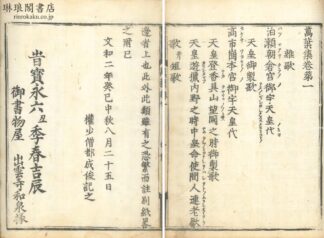 琳琅閣書店
rinrokaku.co.jp
萬葉集卷第一
雜歌
泊瀬朝倉宮御宇天皇代
天皇御製歌
高市岡本宮御宇天皇代
天皇登香具山望國之時御製歌
天皇遊獵内野之時中皇命使間人連老獻
歌并短歌
邊者上也此外此類雖有之恐繁而註別紙畧
之而已
文和二年癸巳中秋八月二十五日
權少僧都成俊記之
旹寶永六丑季春吉辰
御書物屋
出雲寺和泉掾